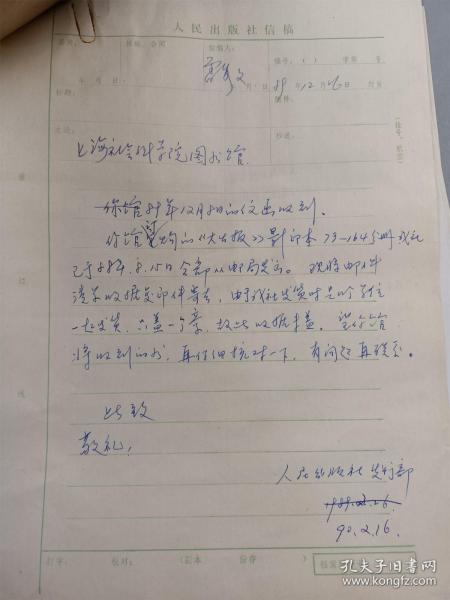 人民出版社信稿
拟稿人:
编号:( ) 字第 号
年 月 日
月 日
89年12月26日 封发
标题:
附件:
主送:
抄送:
上海社会科学院图书馆
你馆89年12月8日的信函收到。
你馆订购的《大公报》影印本73-164 5册我社
已于88年.8.15日全部从邮局发出。现将邮件
清单收据复印件寄去,由于我社发货时是几个单位
一起发货,只盖一个章,故此收据未盖。望你馆
将收到的书,再仔细核对一下,有问题再联系。
此致
敬礼!
人民出版社发行部
90.2.16.
打字: 校对: (正本 份存 )
装订线
孔夫子旧书网
www.kongfz.com